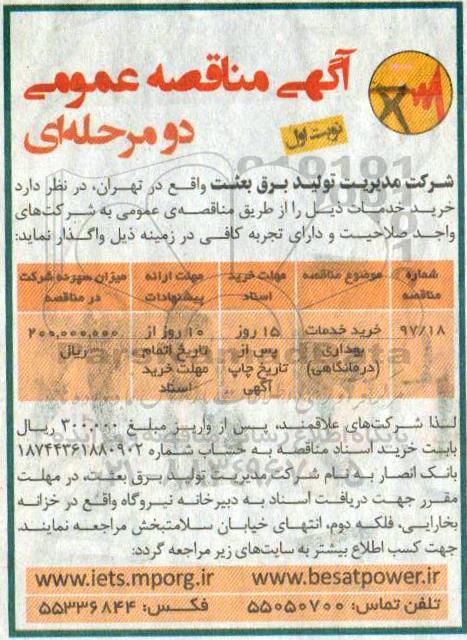 آگهی مناقصه عمومی
دو مرحله‌ای
نوبت اول
شرکت مدیریت تولید برق بعثت واقع در تهران، در نظر دارد
خرید خدمات ذیل را از طریق مناقصه‌ی عمومی به شرکت‌های
واجد صلاحیت و دارای تجربه کافی در زمینه ذیل واگذار نماید:
شماره مناقصه | موضوع مناقصه | مهلت خرید اسناد | مهلت ارائه پیشنهادات | میزان سپرده شرکت در مناقصه
۹۷/۱۸ | خرید خدمات بهداری (درمانگاهی) | ۱۵ روز پس از تاریخ چاپ آگهی | ۱۰ روز از تاریخ اتمام مهلت خرید اسناد | ۲۰۰,۰۰۰,۰۰۰ ریال
لذا شرکت‌های علاقمند، پس از واریز مبلغ ۳۰۰,۰۰۰ ریال
بابت خرید اسناد مناقصه به حساب شماره ۱۸۷۴۴۳۶۱۸۸۰۹۰۲
بانک انصار به نام شرکت مدیریت تولید برق بعثت، در مهلت
مقرر جهت دریافت اسناد به دبیرخانه نیروگاه واقع در خزانه
بخارایی، فلکه دوم، انتهای خیابان سلامتبخش مراجعه نمایند.
جهت کسب اطلاع بیشتر به سایت‌های زیر مراجعه گردد:
www.iets.mporg.ir www.besatpower.ir
تلفن تماس: ۵۵۰۵۰۷۰۰ فکس: ۵۵۳۳۶۸۴۴